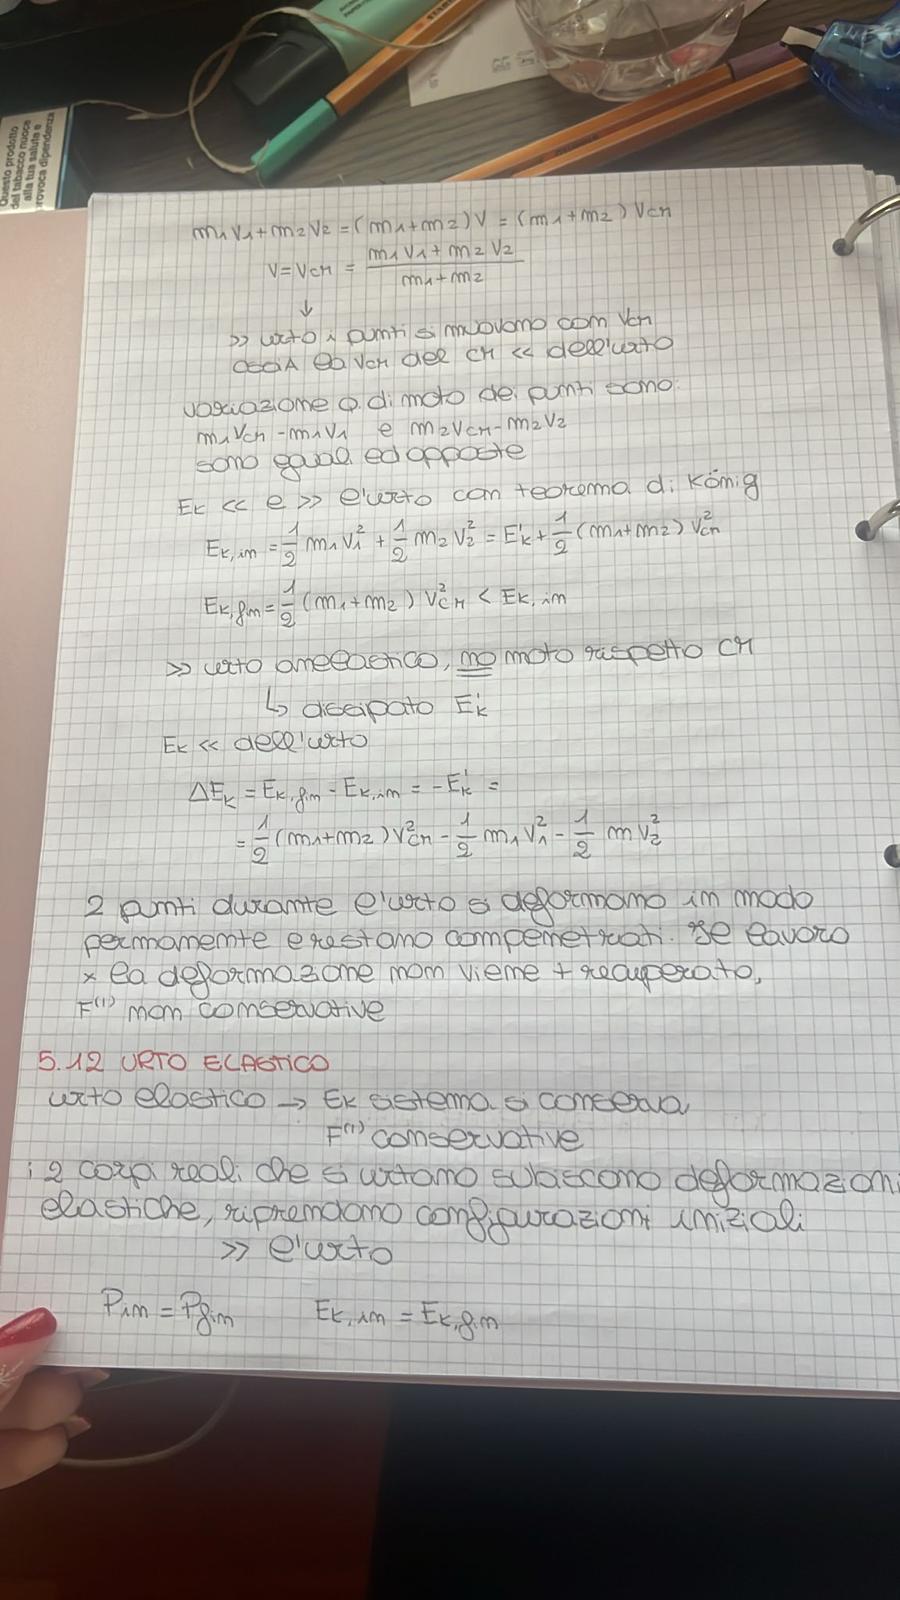 Questo prodotto
del tabacco nuoce
alla tua salute e
provoca dipendenza
m₁v₁+m₂v₂=(m₁+m₂)v = (m₁+m₂) vcm
v=vcm = m₁v₁+m₂v₂ / m₁+m₂
↓
>> urto i punti si muovono con vcm
ossia la vcm del CM << dell'urto
variazione q. di moto dei punti sono:
m₁vcm -m₁v₁ e m₂vcm-m₂v₂
sono guali ed opposte
Ek << e >> l'urto con teorema di König
Ek,in = 1/2 m₁v₁² + 1/2 m₂v₂² = E'k + 1/2 (m₁+m₂) vcm²
Ek,fin = 1/2 (m₁+m₂) vcm² < Ek,in
>> urto anelastico, no moto rispetto CM
↳ dissipato E'k
Ek << dell'urto
ΔEk = Ek,fin - Ek,in = -E'k =
= 1/2 (m₁+m₂) vcm² - 1/2 m₁v₁² - 1/2 mv₂²
2 punti durante l'urto si deformano in modo
permanente e restano compenetrati. Il lavoro
x la deformazione non viene + recuperato,
F⁽ᴵ⁾ non conservative
5.12 URTO ELASTICO
urto elastico → Ek sistema si conserva,
F⁽ᴵ⁾ conservative
i 2 corpi reali che si urtano subiscono deformazioni
elastiche, riprendono configurazioni iniziali
>> l'urto
Pin = Pfin Ek,in = Ek,fin